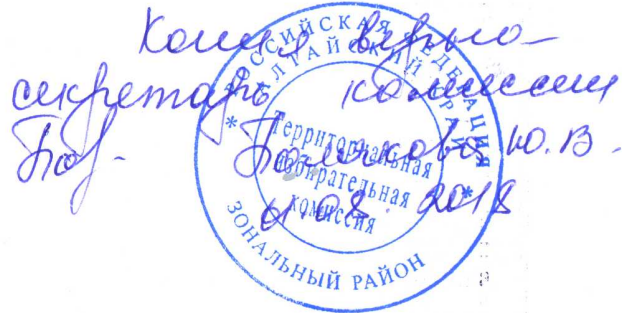 Копия верно-
секретарь комиссии
Ю.В.
08. 2018
РОССИЙСКАЯ ФЕДЕРАЦИЯ
АЛТАЙСКИЙ КРАЙ
* ЗОНАЛЬНЫЙ РАЙОН *
Территориальная
избирательная
комиссия